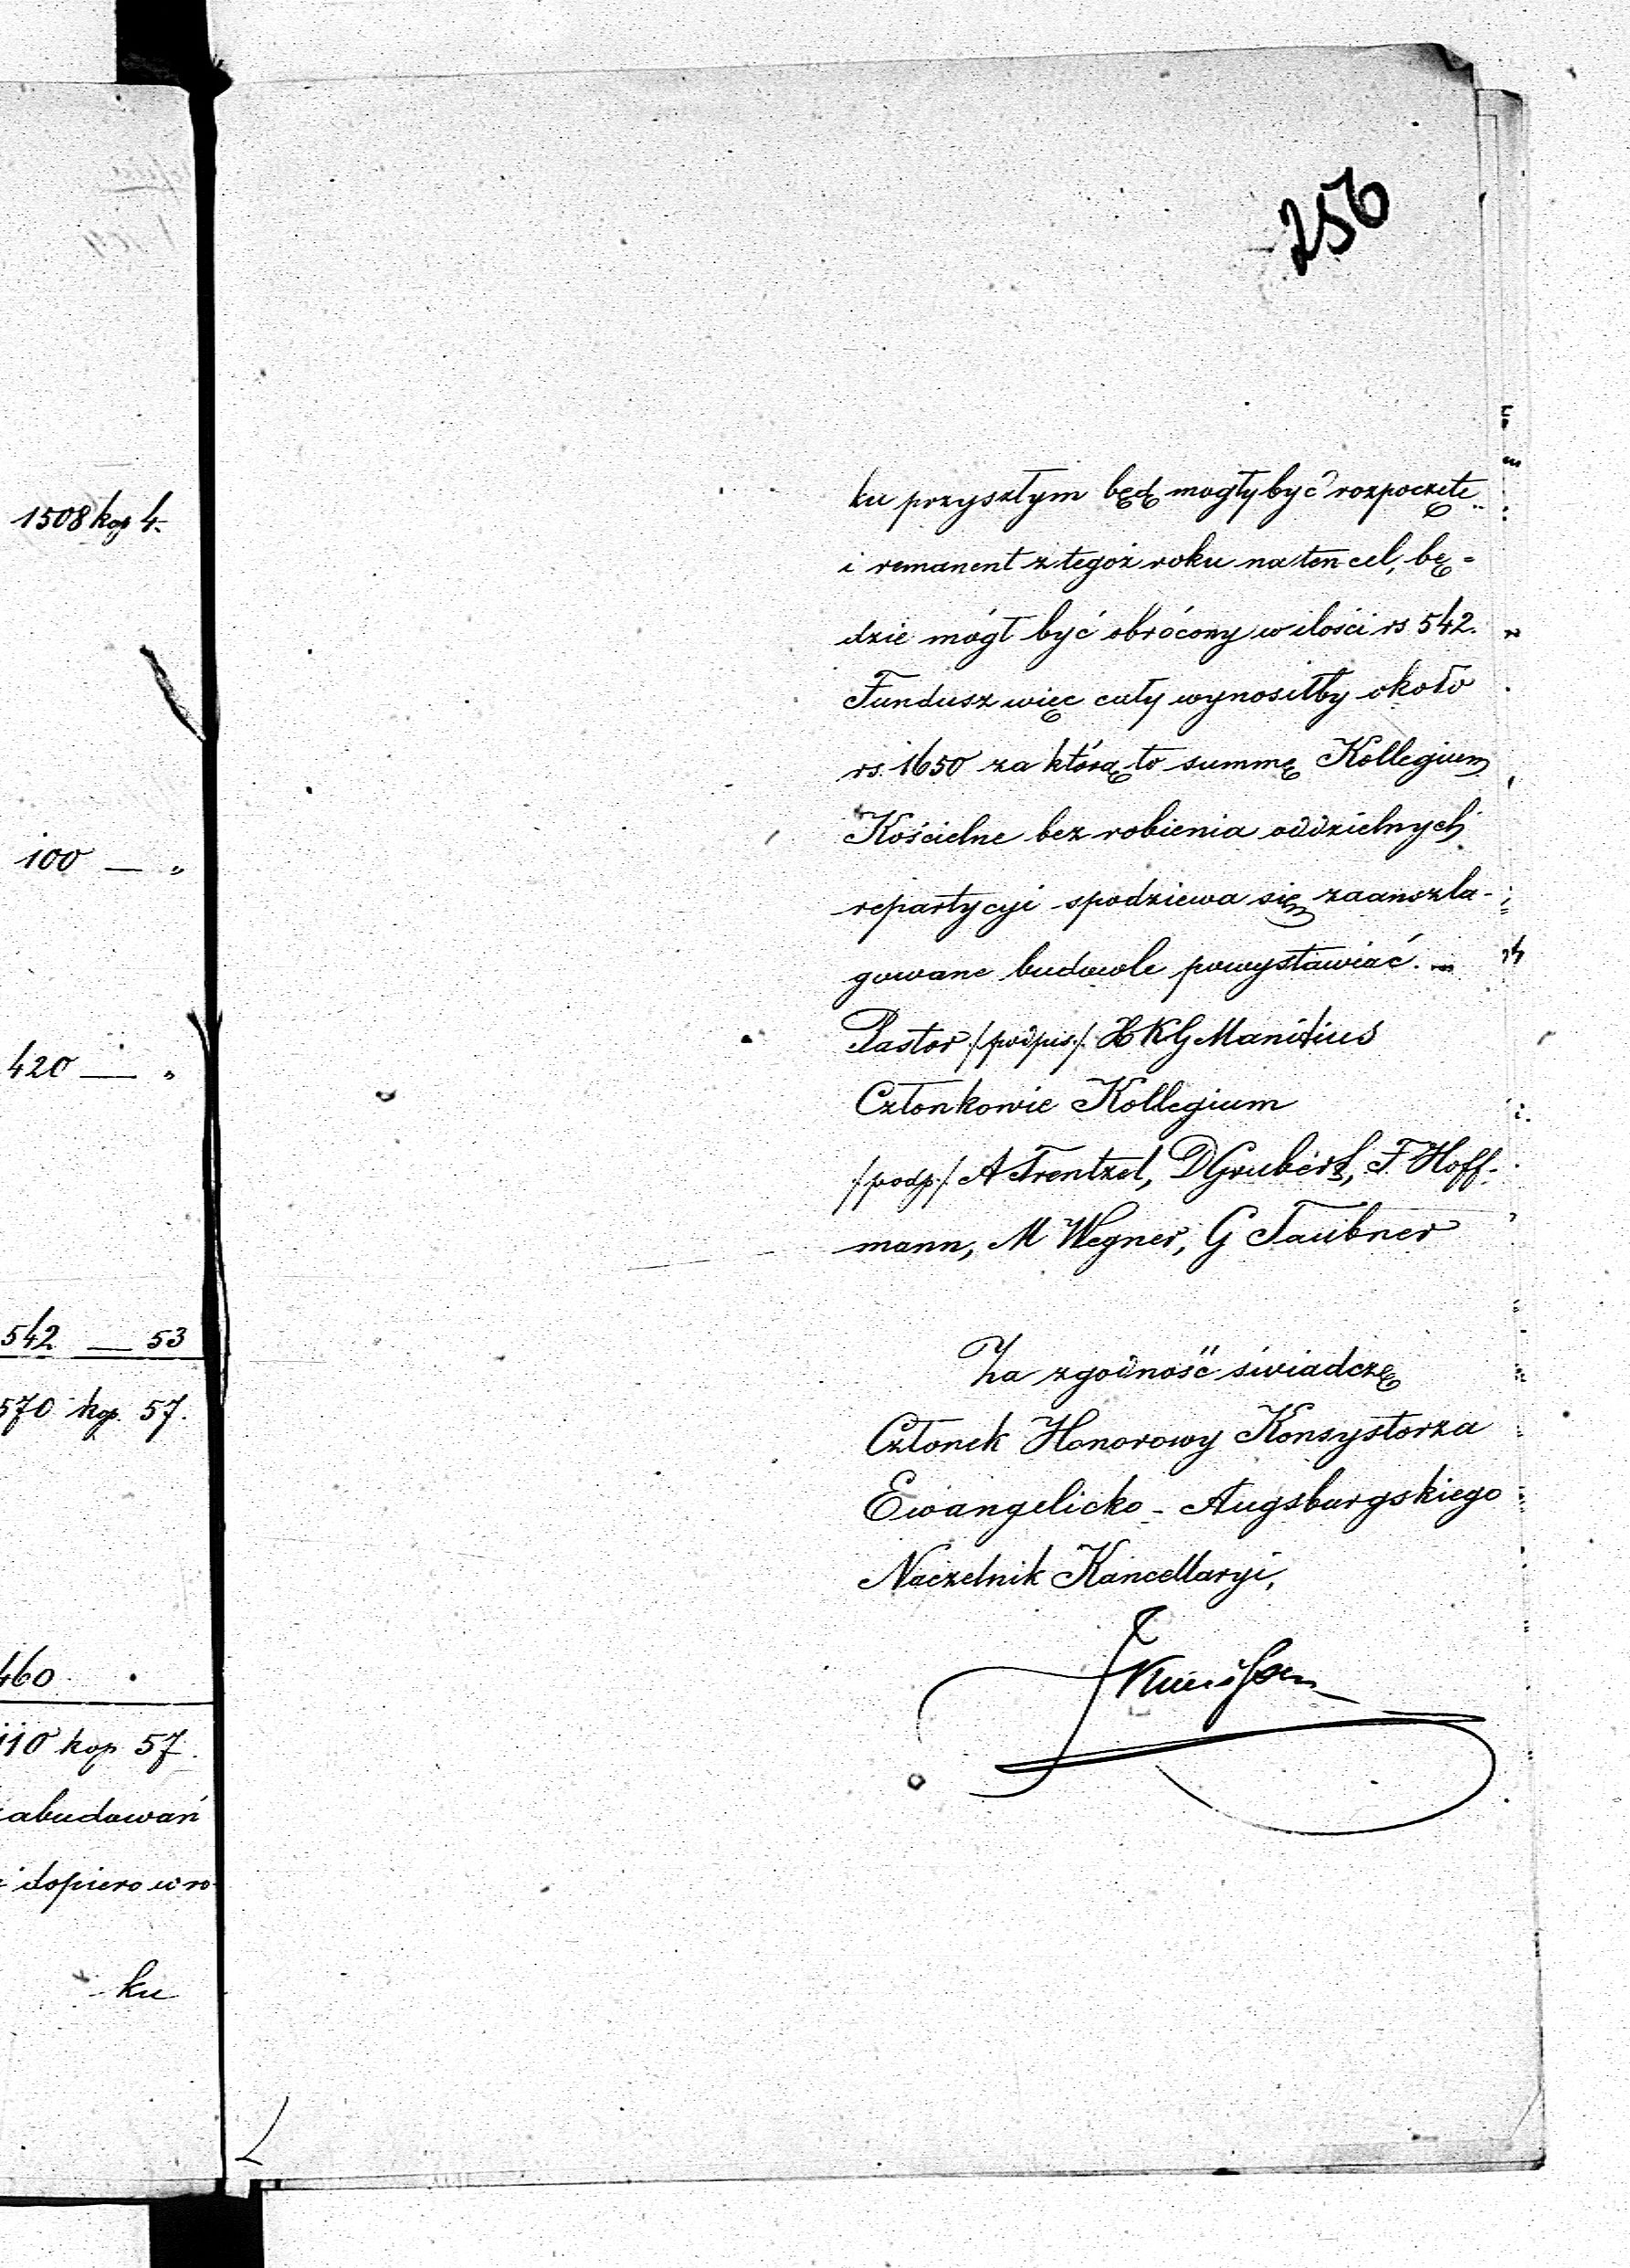 256
1508 kop 4.
100 — "
420 — "
542 — 53
570 kop. 57.
460
110 kop 57.
abudowań
dopiero w ro
ku
ku przyszłym będą mogły być rozpoczęte
i remanent z tegoż roku na ten cel, bę-
dzie mógł być obrócony w ilości rs 542.
Fundusz więc cały wynosiłby około
rs. 1650 za którą to summę Kollegium
Kościelne bez robienia oddzielnych
repartycyi spodziewa się zaanszla-
gowane budowle powystawiać. —
Pastor /podpis/ K G Manitius
Członkowie Kollegium
/podp/ A Trentzel, D Grubert, F. Hoff-
mann, M Wegner, G Taubner
Za zgodność świadczę
Członek Honorowy Konsystorza
Ewangelicko - Augsburgskiego
Naczelnik Kancellaryi,